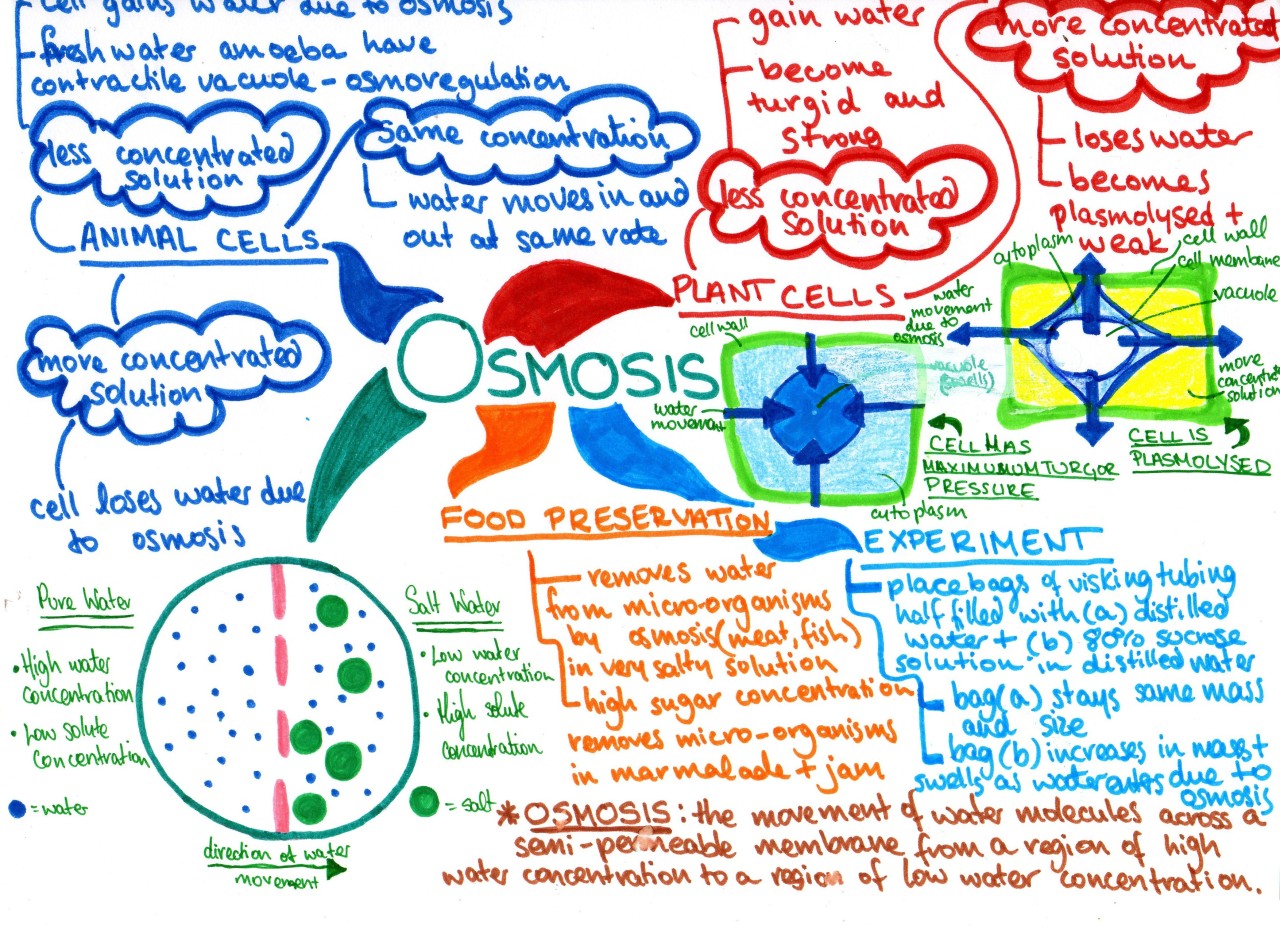 cell gains water due to osmosis
fresh water amoeba have
contractile vacuole - osmoregulation
less concentrated
solution
same concentration
water moves in and
out at same rate
ANIMAL CELLS
more concentrated
solution
cell loses water due
to osmosis
gain water
become
turgid and
strong
less concentrated
solution
PLANT CELLS
more concentrated
solution
loses water
becomes
plasmolysed +
weak
cytoplasm
cell wall
cell membrane
vacuole
water
movement
due to
osmosis
more
concentrated
solution
CELL IS
PLASMOLYSED
OSMOSIS
cell wall
vacuole
(swells)
water
movement
cytoplasm
CELL HAS
MAXIMUMUM TURGOR
PRESSURE
FOOD PRESERVATION
removes water
from micro-organisms
by osmosis (meat, fish)
in very salty solution
high sugar concentration
removes micro-organisms
in marmalade + jam
EXPERIMENT
place bags of visking tubing
half filled with (a) distilled
water + (b) 80% sucrose
solution in distilled water
bag (a) stays same mass
and size
bag (b) increases in mass +
swells as water enters due to
osmosis
Pure Water
• High water
concentration
• Low solute
concentration
= water
Salt Water
• Low water
concentration
• High solute
concentration
= salt
direction of water
movement
* OSMOSIS: the movement of water molecules across a
semi-permeable membrane from a region of high
water concentration to a region of low water concentration.